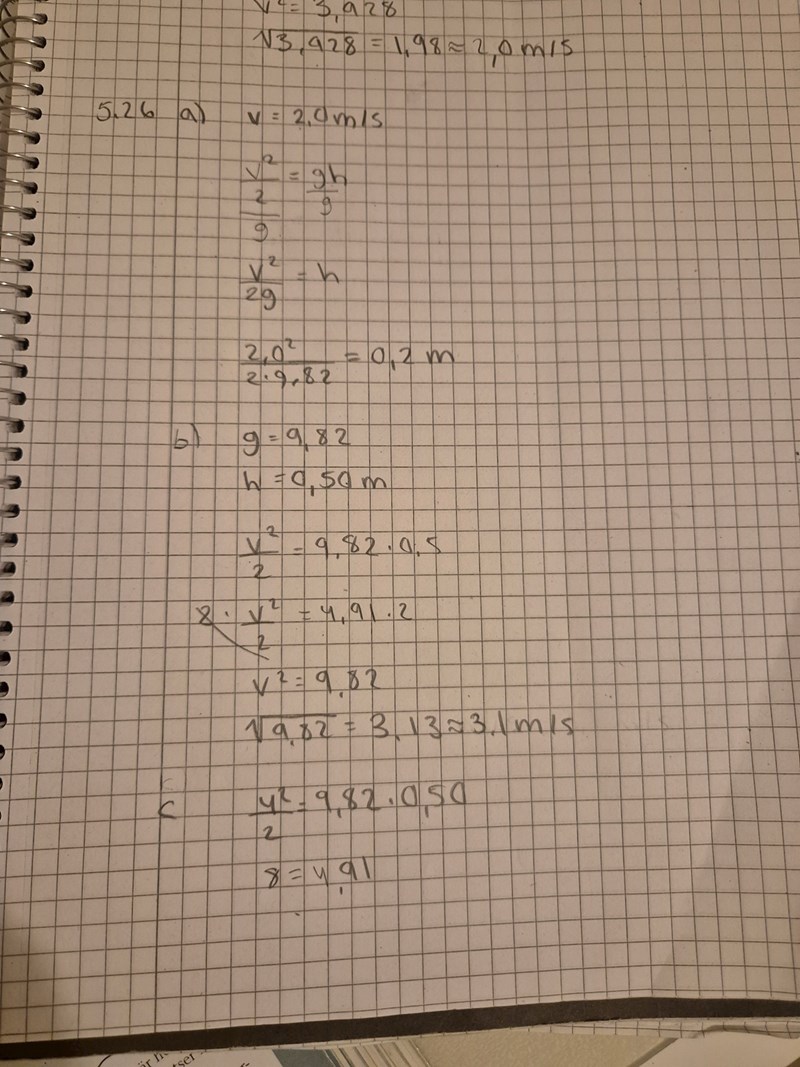 v² = 3,928
√3,928 = 1,98 ≈ 2,0 m/s
5.26 a) v = 2,0 m/s
v²/2/g = gh/g
v²/2g = h
2,0²/2·9,82 = 0,2 m
b) g = 9,82
h = 0,50 m
v²/2 = 9,82 · 0,5
2 · v²/2 = 4,91 · 2
v² = 9,82
√9,82 = 3,13 ≈ 3,1 m/s
c 4²/2 = 9,82 · 0,50
8 = 4,91